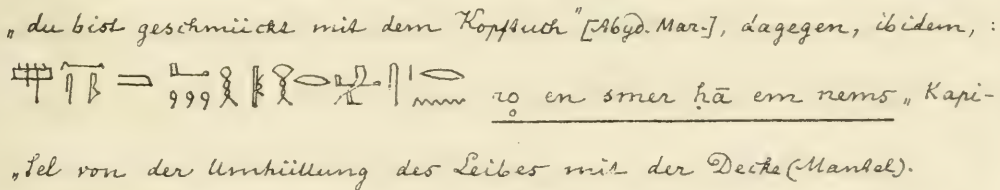 „du bist geschmückt mit dem Kopftuch" [Abyd. Mar.], dagegen, ibidem, :
ro̥ en smer ḥā em nems „Kapi-
„tel von der Umhüllung des Leibes mit der Decke (Mantel).